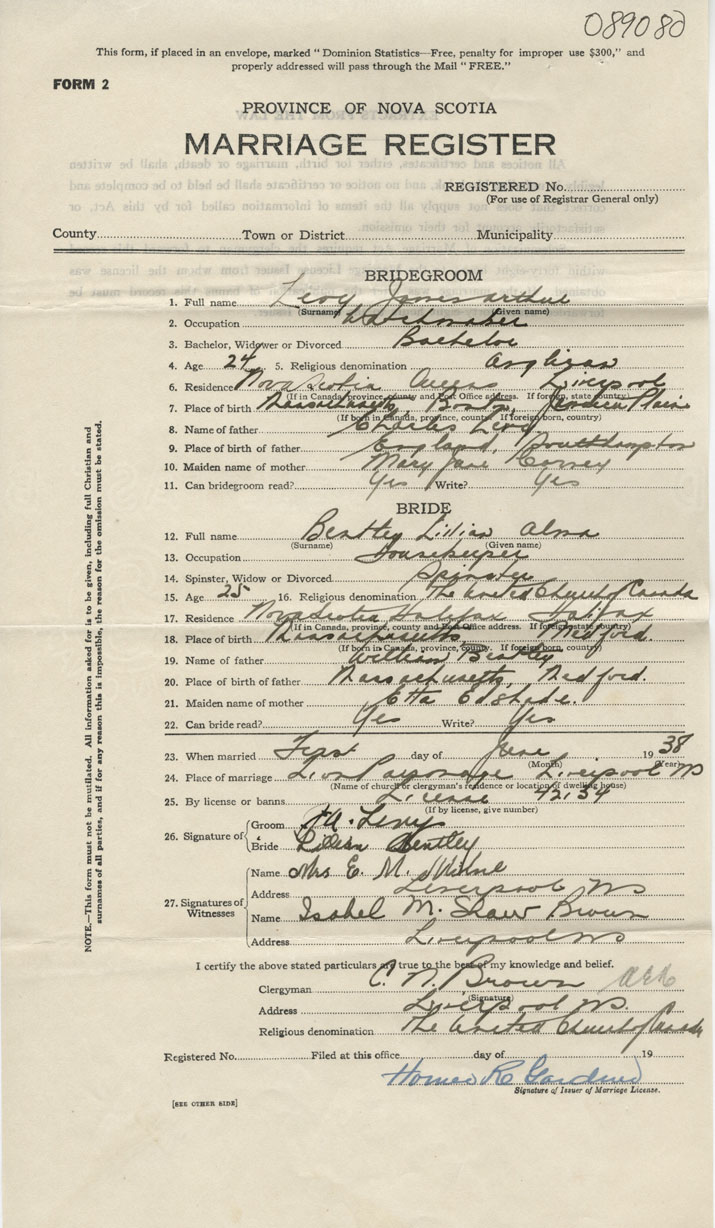 089080
This form, if placed in an envelope, marked "Dominion Statistics—Free, penalty for improper use $300," and
properly addressed will pass through the Mail "FREE."
FORM 2
PROVINCE OF NOVA SCOTIA
MARRIAGE REGISTER
REGISTERED No.
(For use of Registrar General only)
County Town or District Municipality
BRIDEGROOM
1. Full name Levy James arthur
(Surname) (Given name)
2. Occupation Watchmaker
3. Bachelor, Widower or Divorced Bachelor
4. Age 24 5. Religious denomination Anglican
6. Residence Nova Scotia Queens Liverpool
(If in Canada, province, county and Post Office address. If foreign, state country)
7. Place of birth Massachusetts, Boston, Plain
(If born in Canada, province, county. If foreign born, country)
8. Name of father Charles Levy
9. Place of birth of father England, Southhampton
10. Maiden name of mother Mary Jane
11. Can bridegroom read? Yes Write? Yes
BRIDE
12. Full name Bentley Lilian Alma
(Surname) (Given name)
13. Occupation Housekeeper
14. Spinster, Widow or Divorced Spinster
15. Age 25 16. Religious denomination The United Church of Canada
17. Residence Nova Scotia Halifax Halifax
(If in Canada, province, county and Post Office address. If foreign state country)
18. Place of birth Massachusetts, Medford
(If born in Canada, province, county. If foreign born, country)
19. Name of father William Bentley
20. Place of birth of father Massachusetts, Medford.
21. Maiden name of mother Etta
22. Can bride read? Yes Write? Yes
23. When married First day of June 1938
(Month) (Year)
24. Place of marriage Parsonage Liverpool NS
(Name of church or clergyman's residence or location of dwelling house)
25. By license or banns License 42134
(If by license, give number)
26. Signature of Groom J A. Levy
Bride Lilian Bentley
27. Signatures of Witnesses Name Mrs E. M.
Address Liverpool NS
Name Isabel M. Shaw Brown
Address Liverpool NS
I certify the above stated particulars are true to the best of my knowledge and belief.
Clergyman C. N. Brown
(Signature)
Address Liverpool NS.
Religious denomination The United Church of Canada
Registered No. Filed at this office day of 19
Signature of Issuer of Marriage License.
[SEE OTHER SIDE]
NOTE.—This form must not be mutilated. All information asked for is to be given, including full Christian and
surnames of all parties, and if for any reason this is impossible, the reason for the omission must be stated.